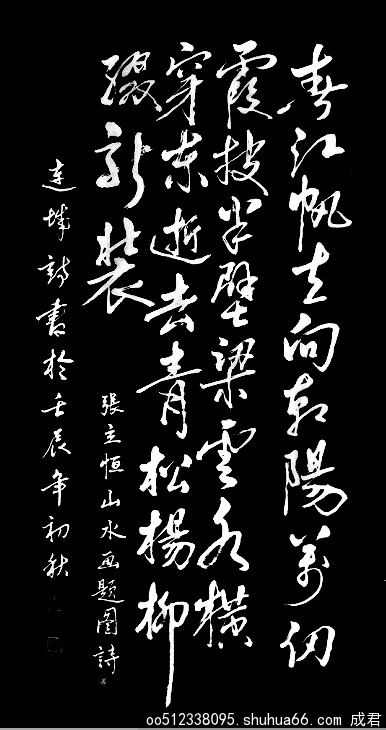 春江帆立向朝陽萬仞
霞披半壁梁雲水橫
穿東逝去青松楊柳
綴新裝
張立恒山水画题图詩
達城詩書於壬辰年初秋
oo512338095.shuhua66.com 成君